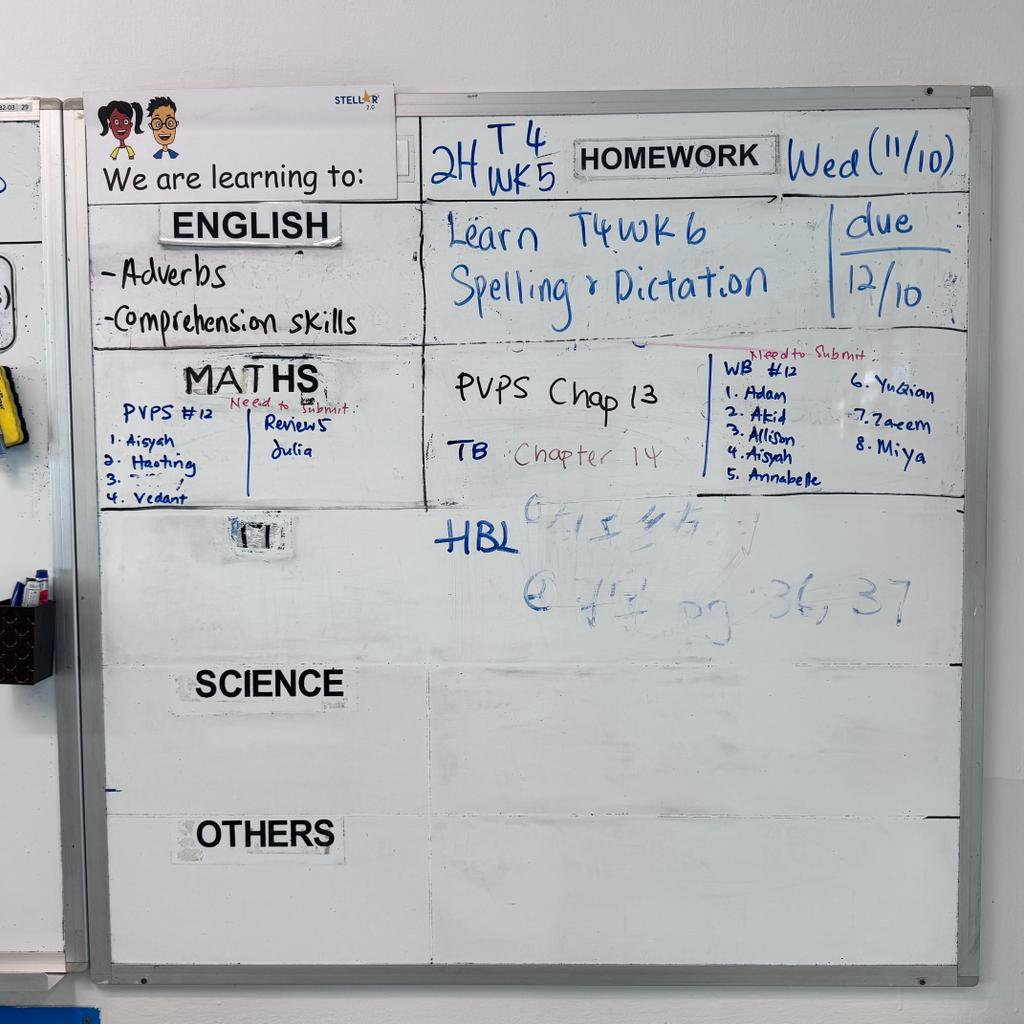 STELLAR
2.0
We are learning to:
2H T4 WK5
HOMEWORK
Wed (11/10)
ENGLISH
-Adverbs
-Comprehension skills
Learn T4WK6
Spelling & Dictation
due
12/10
MATHS
Need to Submit:
PVPS #12
1. Aisyah
2. Haoting
3.
4. Vedant
Review5
Julia
PVPS Chap 13
TB Chapter 14
Need to Submit:
WB #12
1. Adam
2. Akid
3. Allison
4. Aisyah
5. Annabelle
6. YuQian
7. Zareem
8. Miya
HBL
pg 36, 37
SCIENCE
OTHERS